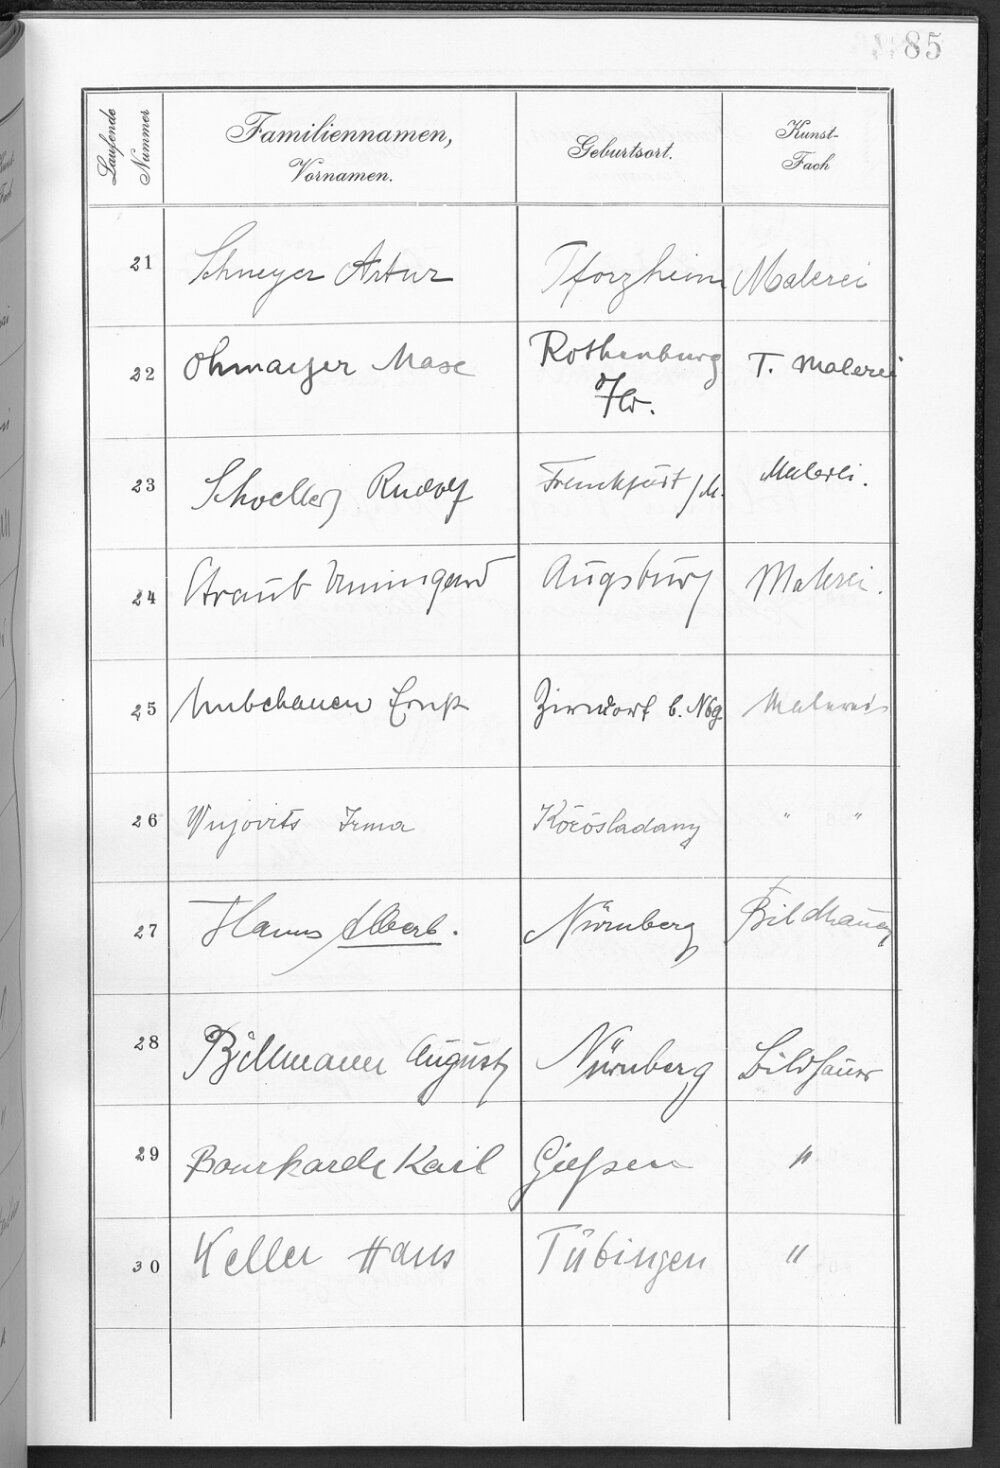 85
Laufende Nummer
Familiennamen, Vornamen.
Geburtsort.
Kunst-Fach
21 Schneyer Artur Pforzheim Malerei
22 Ohmayer Max Rothenburg o/Tbr. T. Malerei
23 Schoeller Rudolf Frankfurt /M. Malerei.
24 Straub Irmingard Augsburg Malerei.
25 Unbehauen Ernst Zirndorf b. Nbg. Malerei
26 Vujovits Irma Körösladany " "
27 Hanns Albert. Nürnberg Bildhauer
28 Billmann August Nürnberg Bildhauer
29 Bourkarde Karl Gießen "
30 Keller Hans Tübingen "